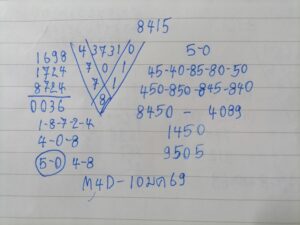 8415
1698
1724
8724
0036
4 3731 0
7 0 1
7 1
8
1-8-7-2-4
4-0-8
5-0 4-8
5-0
45-40-85-80-50
450-850-845-840
8450 - 4089
1450
9505
M4D-10มค69